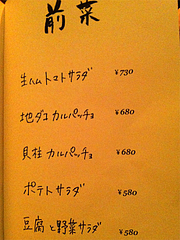 前菜
生ハムトマトサラダ ¥730
地ダコ カルパッチョ ¥680
貝柱 カルパッチョ ¥680
ポテトサラダ ¥580
豆腐と野菜サラダ ¥580